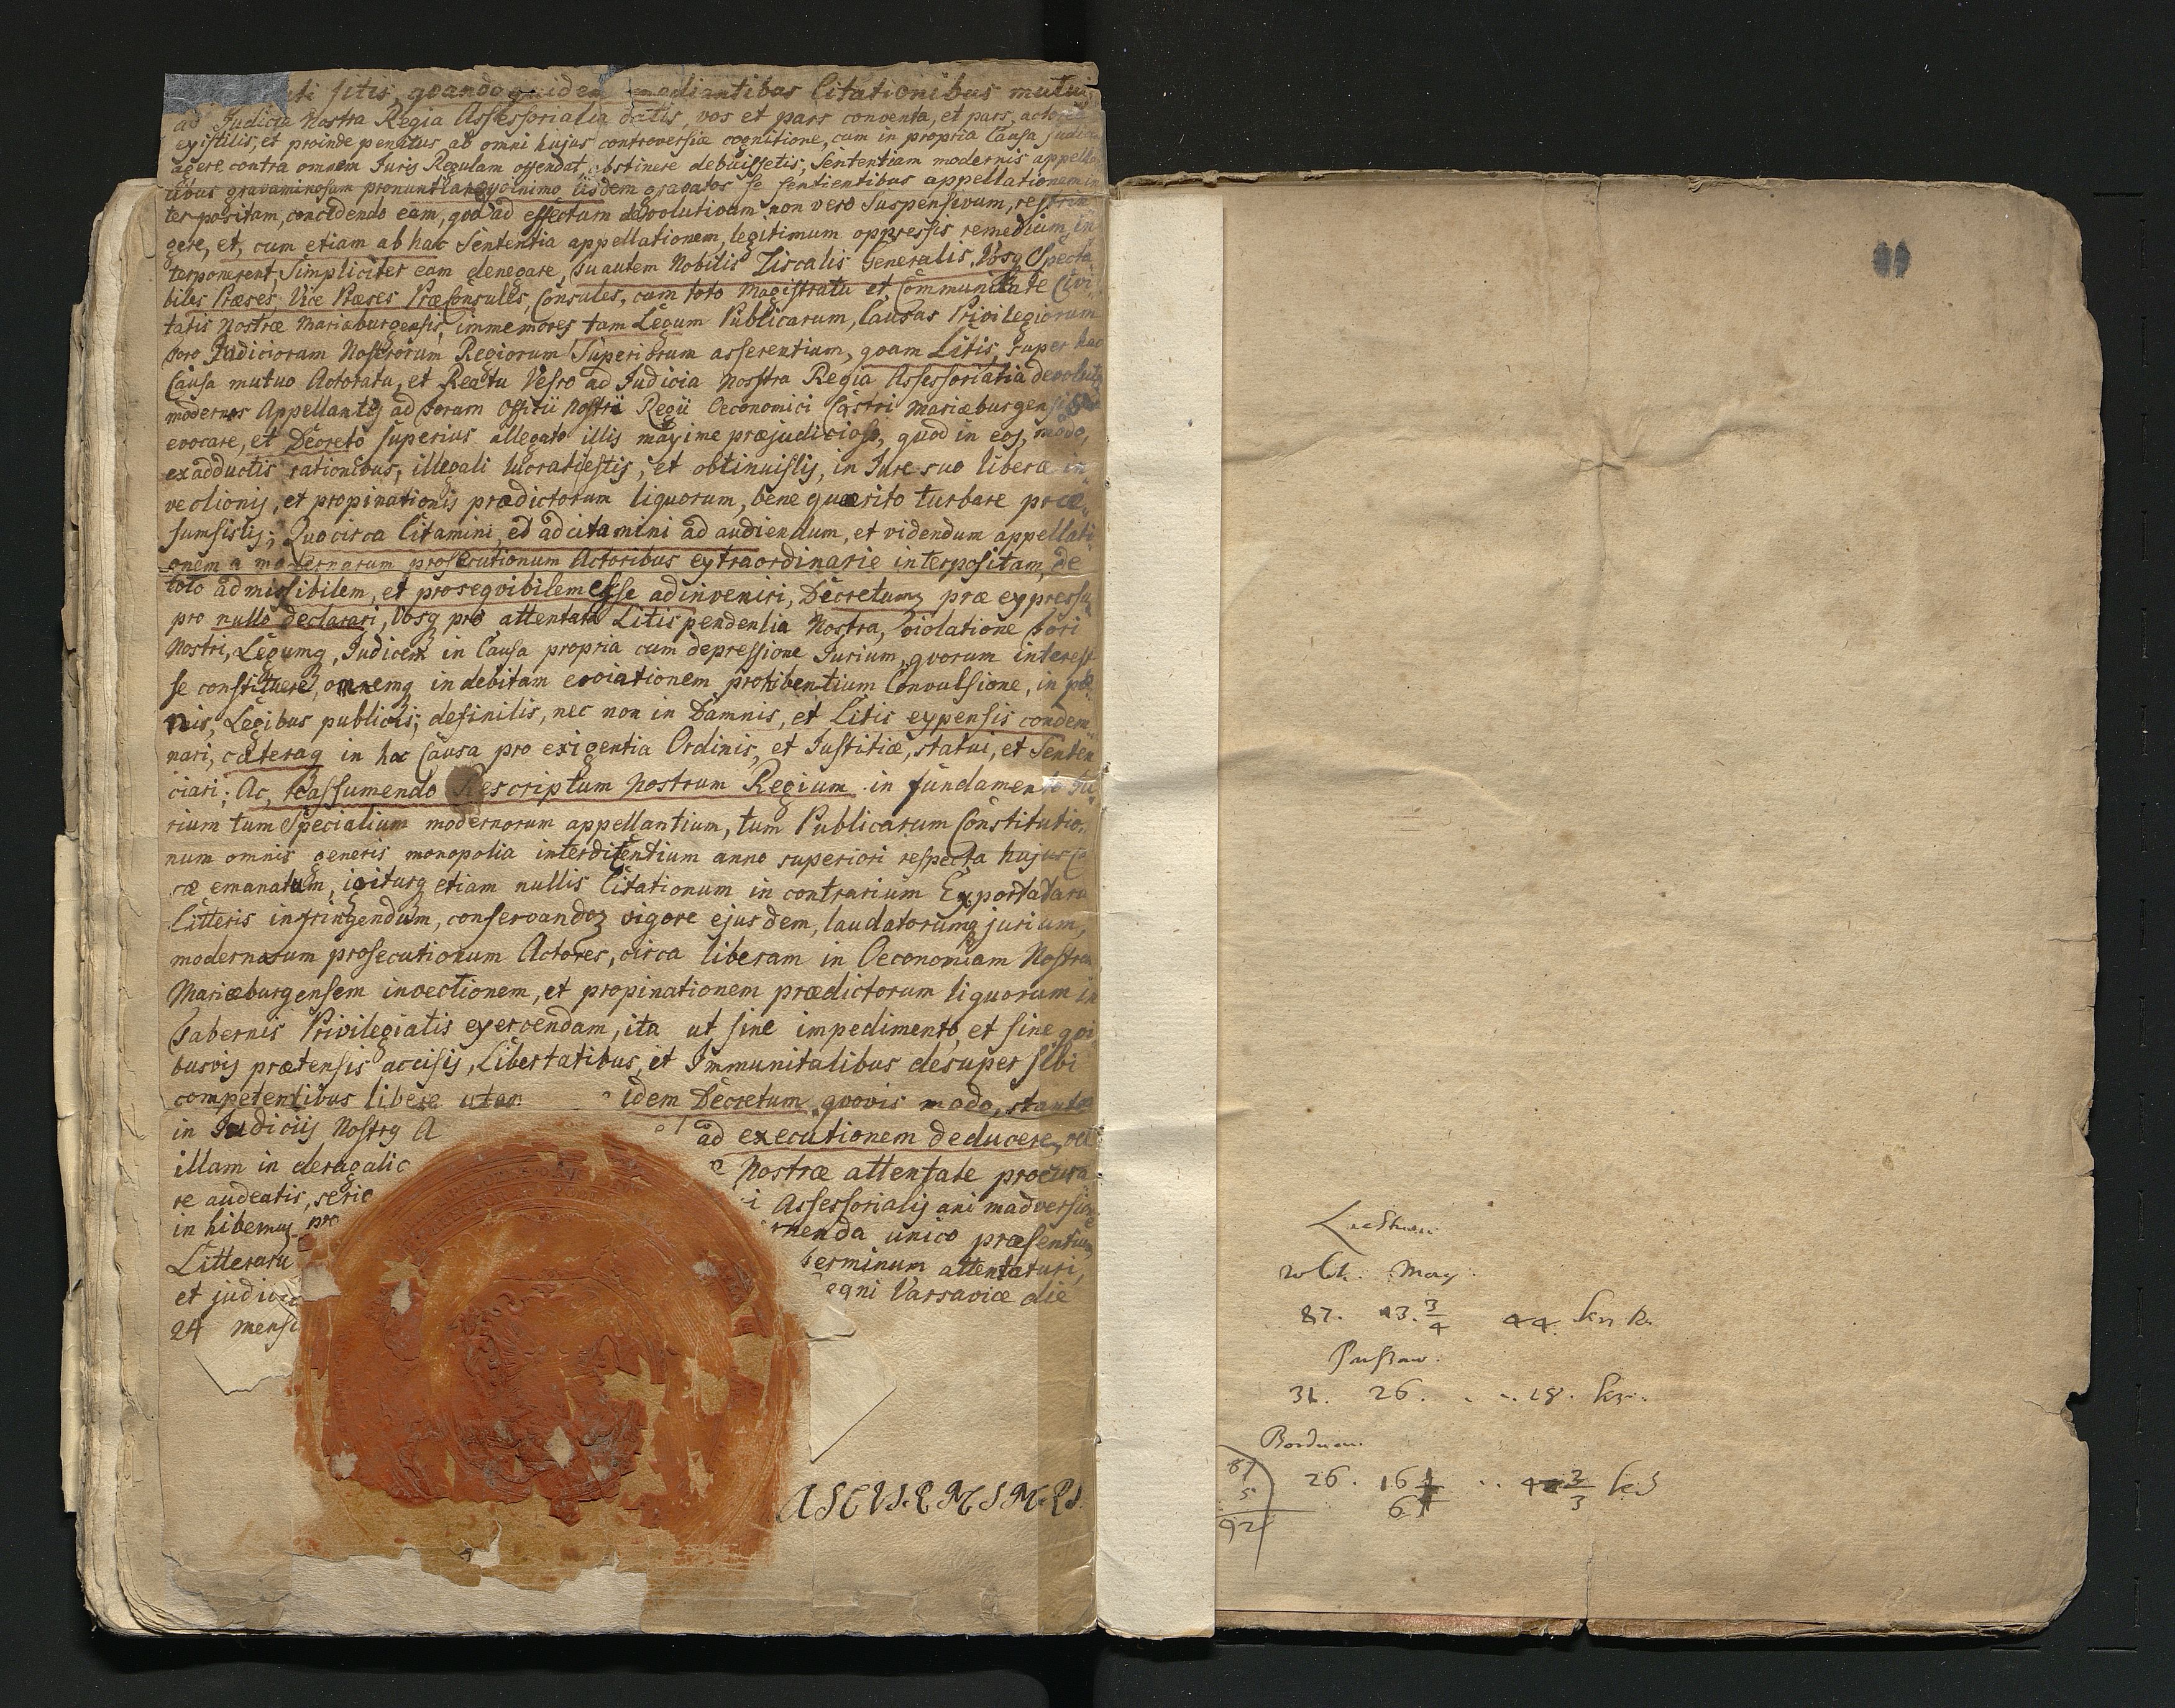 sitis, quandoquidem mediantibus Citationibus mutuis
ad Judicia Nostra Regia Assessorialia datis, vos et pars conventa, et pars, actorea
existitis, et proinde penitus ab omni hujus controversiæ cognitione, cum in propria Causa judicem
agere contra omnem Juris Regulam ostendat, abstinere debuissetis, Sententiam modernis appellan
tibus gravaminosam pronuntiare iisdem gravatos se sentientibus appellationem in
terpositam, concedendo eam, quo ad effectum devolutivum non vero Suspensivum, restrin
gere, et, cum etiam ab hac Sententia appellationem, legitimum oppressis remedium, in
terponerent, Simpliciter eam denegare, tu autem Nobilis Fiscalis Generalis, Vosq Specta
biles Præses, Vice Præses Præconsules, Consules, cum toto Magistratu et Communitate Civi
tatis Nostræ Mariæburgensis, immemores tam Legum Publicarum, Causas Privilegiorum
foro Judiciorum Nostrorum Regiorum Superiorum asserentium, quam Litis, super hac
Causa mutuo Actoratu, et Reatu Vestro ad Judicia Nostra Regia Assessorialia devolutæ
modernos Appellantes ad forum Officii Nostri Regii Oeconomici Castri Mariæburgensis
evocare, et Decreto superius allegato illis maxime præjudicioso, quod in eos, modo,
ex adductis rationibus, illegali lucratiestis, et obtinuistis, in Jure suo liberæ in„
vectionis, et propinationis prædictorum liquorum, bene quæsito turbare præ„
sumsistis; Quocirca Citamini, ed adcitamini ad audiendum, et videndum appellati
onem a modernarum prosecutionum Actoribus extraordinarie interpositam, de
toto admissibilem, et prosequibilem esse adinveniri, Decretumq præ expressu
pro nullo declarari, Vosq pro attentata Litispendentia Nostra, violatione fori
Nostri, Legumq, Judicem in Causa propria cum depressione Jurium, quorum interest
se constituere, omnemq indebitam eviationem prohibentium Convulsione, in pœ
nis, Legibus publicis, definitis, nec non in Damnis, et Litis expensis condem„
nari, cæteraq in hac Causa pro exigentia Ordinis, et Justitiæ, statui, et Senten
ciari; Ac, reassumendo Rescriptum Nostrum Regium in fundamento Ju„
rium tum Specialium modernorum appellantium, tum Publicarum Constitutio„
num omnis generis monopolia interdicentium anno superiori respectu hujus Ca
sæ emanatum, igiturq etiam nullis Citationum in contrarium Exportatarum
Litteris infringendum, conservandoq vigore ejusdem, laudatorumq jurium,
modernarum prosecutionum Actores, circa liberam in Oeconomiam Nostram
Mariæburgensem invectionem, et propinationem prædictorum liquorum in
Tabernis Privilegiatis exercendam, ita ut sine impedimento, et sine qui
busvis prætensis accisis, Libertatibus, et Immunitatibus desuper sibi
competentibus libere utan idem Decretum quovis modo, stante
in Judiciis Nostris A ad executionem deducere, vel
illam in deragatio Nostræ attentate procura
re audeatis, serio i Assessorialis animadversione
inhibemus pro menda unico præsentium
Litteraru terminum attentaturi,
et judicia egni Varsaviæ die
24 Mensi

87. 13. 3/4 44
31. 26. 18.
26. 16
87
5
92